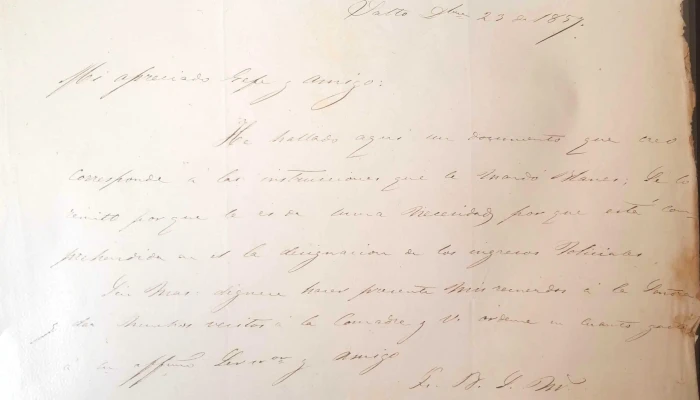 Salto Dbre 23 de 1857.
Mi apreciado Gefe y amigo:
He hallado aquí un documento que creo
corresponde á las instrucciones que le mandó; Se lo
remito porque le es de suma necesidad, porque está com
prehendida en él la designacion de los ingresos Policiales
Sin mas: dígnese hacer presente mis recuerdos á la
y dar muchos besitos á la Comadre y Vd. ordene en cuanto
á su affmo Servor y amigo